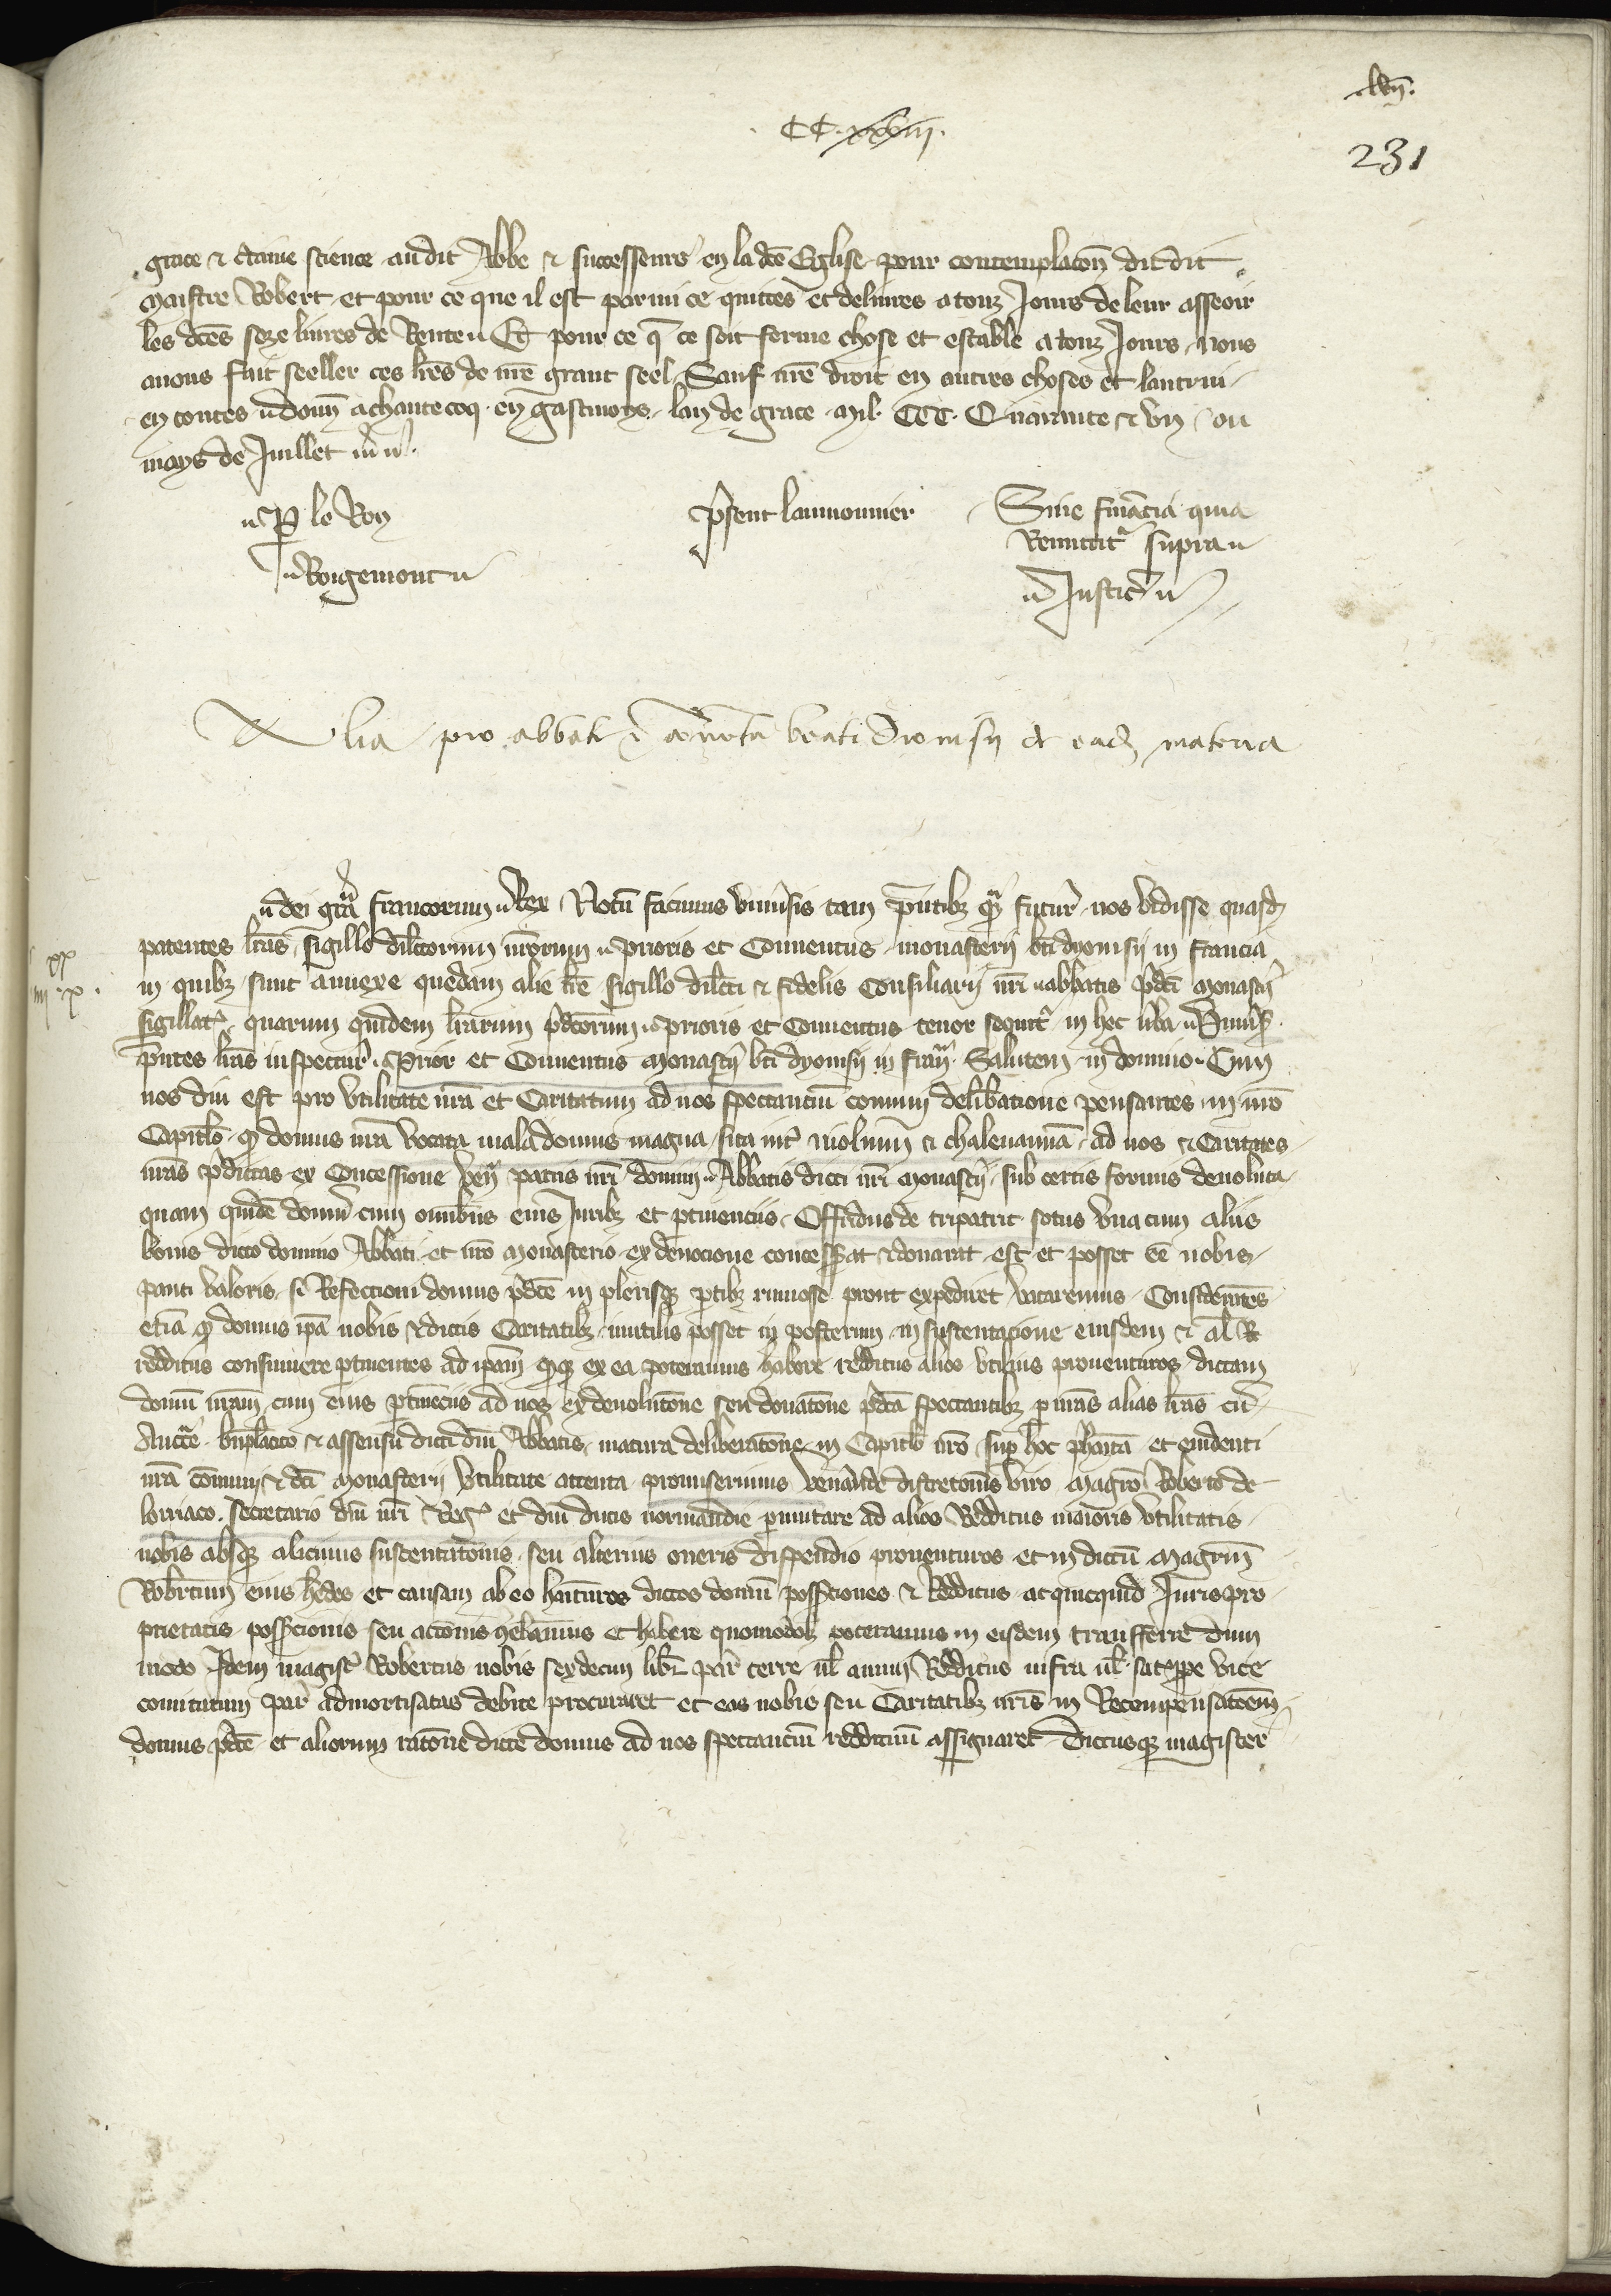 .lvij.
CC.xxviij.
231
grace & c̃taine science au dit Abbe & successeurs en la dc̃e Eglise pour contemplac̃on du dit
maistre Robert et pour ce que il est parmi ce quittes et deliures a touz Jours de leur asseoir
les dc̃es seze liures de Rente Et pour ce q̃ ce soit ferme chose et estable a touz Jours nous
auons fait seeller ces l̃res de nr̃e grant seel Sauf nr̃e droit en autres choses et lautrui
en toutes donn̄ a chantecoq en gastinoys lan de grace mil CCC Quarante & vn ou
mays de Juillet
P̱ le Roy
p̃sent laumonnier
Sine fināncia quia
Remittit᷑ supra
Rogemont
Justic̃
Alia pro abbate & conuentu beati Dionisij de eadē materia
dei gr̃a francorum Rex Notū facimus vniuersis tam p̃ntibꝫ q̃ᵃ futur̃ nos vidisse quasdꝫ
patentes l̃ras sigillo dil̃ctorum nr̃orum prioris et Conuentus monasterij bt̃i dyonisij in francia
in quibꝫ sunt annexe quedam alie l̃re sigillo dil̃cti & fidelis Consiliarij nr̃i abbatis p̃dc̃i Monast̃ij
sigillat᷑ quarum quidem l̃rarum p̃dc̃orum prioris et Conuentus tenor sequit᷑ in hec ṽba Vniuers̃
p̃ntes l̃ras inspectur̃ Prior et Conuentus Monast̃ij bt̃i dyonisij in fran̄ᵃ Salutem in domino Cum
nos diu est pro vtilitate nr̃a et Caritatum ad nos spectanciū comuni delib̃atione pensantes in nr̃o
Capitl̃o q̱ domus nr̃a vocata mala domus magna sita int᷑ riolum̄ & chaleuannā ad nos & Caritates
nr̃as p̃dictas ex Concessione ven̄ patris nr̃i domini Abbatis dicti nr̃i Monast̃ij sub certis formis deuoluta
quam quidē domū cum omnibus eius Juribꝫ et ptinenciis Offidus de tripatrit sotus vna cum aliis
bonis dicto domino Abbati et nr̃o Monasterio ex deuocione concesserat & donarat est et posset eē nobis
pauci valoris si Refeccioni domus p̃dc̃e in plerisqꝫ p̱tibꝫ ruinose prout expediret vacaremus Considerātes
etiā q̱ domus ip̃a nobis & dictis Caritatibꝫ inutilis posset in posterum in sustentacione eiusdem & al̃
redditus consumere p̱tinentes ad ip̃am q̱qꝫ ex ea poteramus habere redditus alios vtilius prouenturos dictam
domū nr̃am cum eius p̱tinēciis ad nos ex deuolutōne seu donatōne p̃dc̃a spectantibꝫ p̱ nr̃as alias l̃ras cū
Auct̃te bn̄placito & assensu dicti dn̄i Abbatis matura deliberatōne in Capitl̃o nr̃o sup̱ hoc p̃hr̃ita et euidenti
nr̃a cōmuni & dc̃i Monasterij vtilitate attenta promiserimus venerande discretōnis viro Magr̃o Roberto de
lorriaco secretario dn̄i nr̃i Reg᷑ et dn̄i ducis normandie p̱mutare ad alios Redditus maioris vtilitatis
nobis absqꝫ alicuius sustentatōnis seu alterius oneris dispendio prouenturos et in dictū Magr̃m
Robertum eius hedes et causam ab eo hr̃ituros dictos domū possessiones & Redditus ac quicquid Juris pro
prietatis possessionis seu actōnis hebāmus et habere quomodolꝫ poteramus in eisdem transferre dum
modo Idem magist᷑ Robertus nobis sexdecim libr̃ par̃ terre ul̃ annui Redditus infra ul̃ satis prope vice
comitatum par̃ admortisatas debite procuraret et eas nobis seu Caritatibꝫ nr̃is in Recompensatōem
domus p̃dc̃e et aliorum ratōne dicte domus ad nos spectanciū reddituū assignaret Dictusqꝫ magister